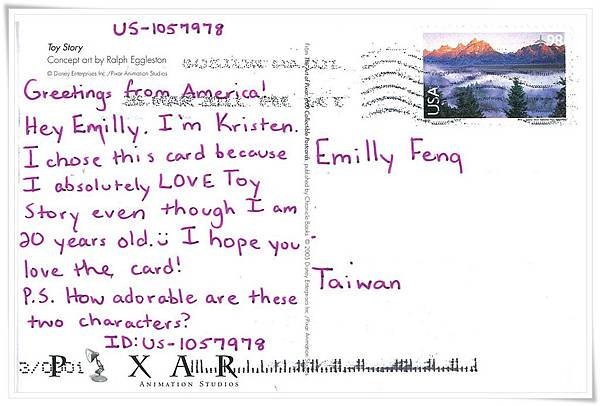 US-1057978
Toy Story
Concept art by Ralph Eggleston
© Disney Enterprises Inc./Pixar Animation Studios
98
USA
Greetings from America!
Hey Emilly. I'm Kristen.
I chose this card because
I absolutely LOVE Toy
Story even though I am
20 years old.
I hope you
love the card!
P.S. How adorable are these
two characters?
ID: US-1057978
Emilly Feng
Taiwan
From The Art of Pixar: Collectible Postcards, published by Chronicle Books. © 2005 Disney Enterprises Inc./Pixar Animation Studios
PIXAR
ANIMATION STUDIOS